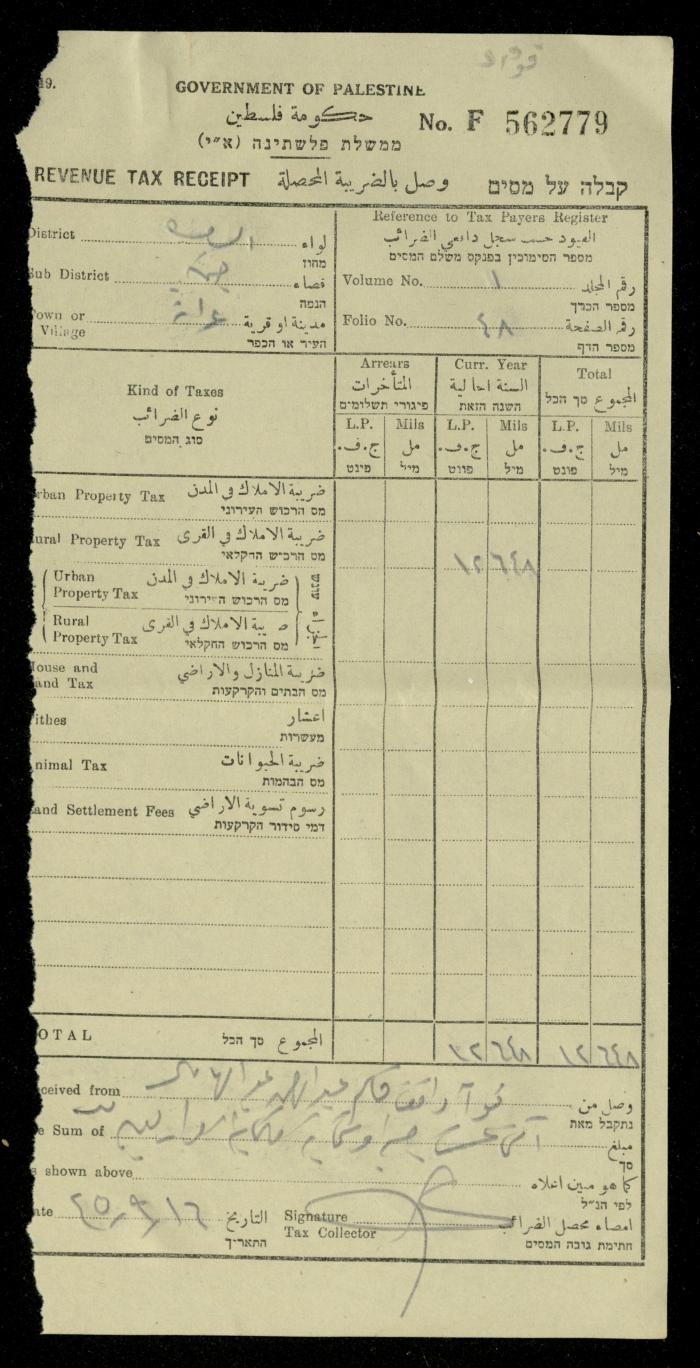 19.
GOVERNMENT OF PALESTINE
حكومة فلسطين
ממשלת פלשתינה (א״י)
No. F 562779
REVENUE TAX RECEIPT وصل بالضريبة المحصلة קבלה על מסים
District لواء
מחוז
Sub District جنين قضاء
הנפה
Town or Village عرابة مدينة او قرية
העיר או הכפר
Reference to Tax Payers Register
القيود حسب سجل دافعي الضرائب
מספר הסימוכין בפנקס משלם המסים
Volume No. ١ رقم المجلد
מספר הכרך
Folio No. ٤٨ رقم الصفحة
מספר הדף
Kind of Taxes
نوع الضرائب
סוג המסים
Arrears Curr. Year Total
المتأخرات السنة الحالية المجموع סך הכל
פיגורי תשלומים השנה הזאת
L.P. Mils L.P. Mils L.P. Mils
ج.ف. مل ج.ف. مل ج.ف. مل
פינט מיל פונט מיל פונט מיל
rban Property Tax ضريبة الاملاك في المدن
מס הרכוש העירוני
ural Property Tax ضريبة الاملاك في القرى ١٢ ٦٤٨
מס הרכוש החקלאי
Urban Property Tax ضريبة الاملاك في المدن
מס הרכוש העירוני
Rural Property Tax ضريبة الاملاك في القرى
מס הרכוש החקלאי
House and
and Tax ضريبة المنازل والاراضي
מס הבתים והקרקעות
ithes اعشار
מעשרות
nimal Tax ضريبة الحيوانات
מס הבהמות
and Settlement Fees رسوم تسوية الاراضي
דמי סידור הקרקעות
OTAL المجموع סך הכל ١٢ ٦٤٨ ١٢ ٦٤٨
ceived from وصل من
נתקבל מאת
e Sum of مبلغ
סך
s shown above كما هو مبين اعلاه
לפי הנ״ל
ate ٤٥/٩/١٦ التاريخ
התאריך
Signature
Tax Collector
امضاء محصل الضرائب
חתימת גובה המסים